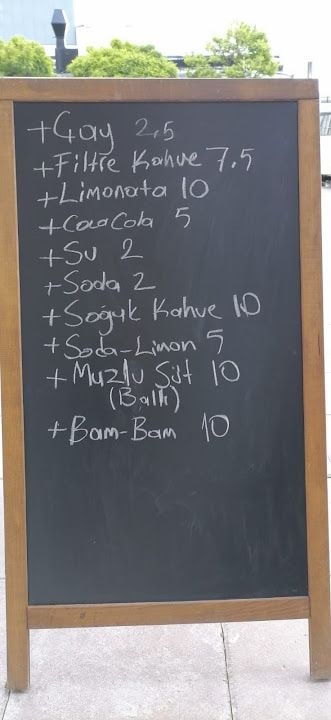 +Çay 2.5
+Filtre Kahve 7.5
+Limonata 10
+Coca Cola 5
+Su 2
+Soda 2
+Soğuk Kahve 10
+Soda-Limon 5
+Muzlu Süt 10
(Ballı)
+Bam-Bam 10